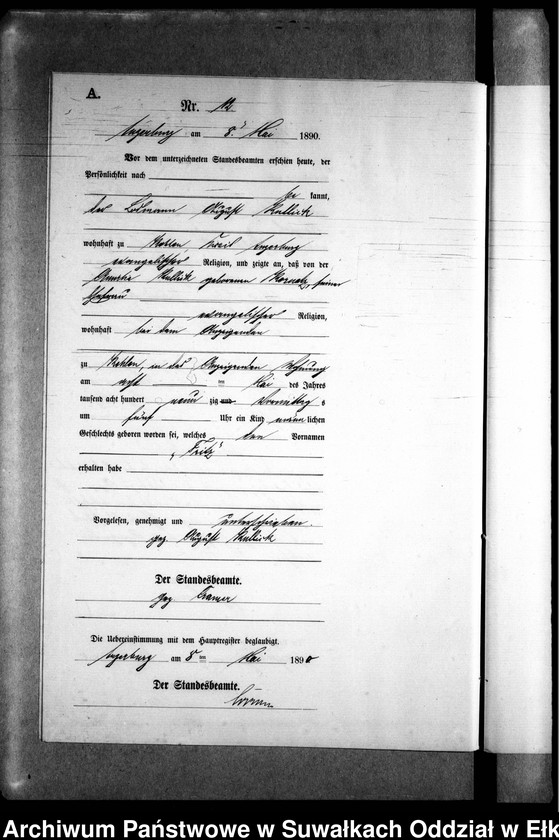 A.
Nr. 12
Angerburg am 8. Mai 1890.
Vor dem unterzeichneten Standesbeamten erschien heute, der
Persönlichkeit nach
be kannt,
der August Kullick
wohnhaft zu Kehlen Kreis Angerburg
evangelischer Religion, und zeigte an, daß von der
Kullick geborenen seiner
Ehefrau
evangelischer Religion,
wohnhaft bei dem Anzeigenden
zu Kehlen, in des Anzeigenden Wohnung
am acht ten Mai des Jahres
tausend acht hundert neun zig und Vormittag s
um fünf Uhr ein Kind männ lichen
Geschlechts geboren worden sei, welches den Vornamen
„Fritz“
erhalten habe
Vorgelesen, genehmigt und unterschrieben.
gez August Kullick
Der Standesbeamte.
gez
Die Uebereinstimmung mit dem Hauptregister beglaubigt.
Angerburg am 8 ten Mai 1890
Der Standesbeamte.
Archiwum Państwowe w Suwałkach Oddział w Ełk